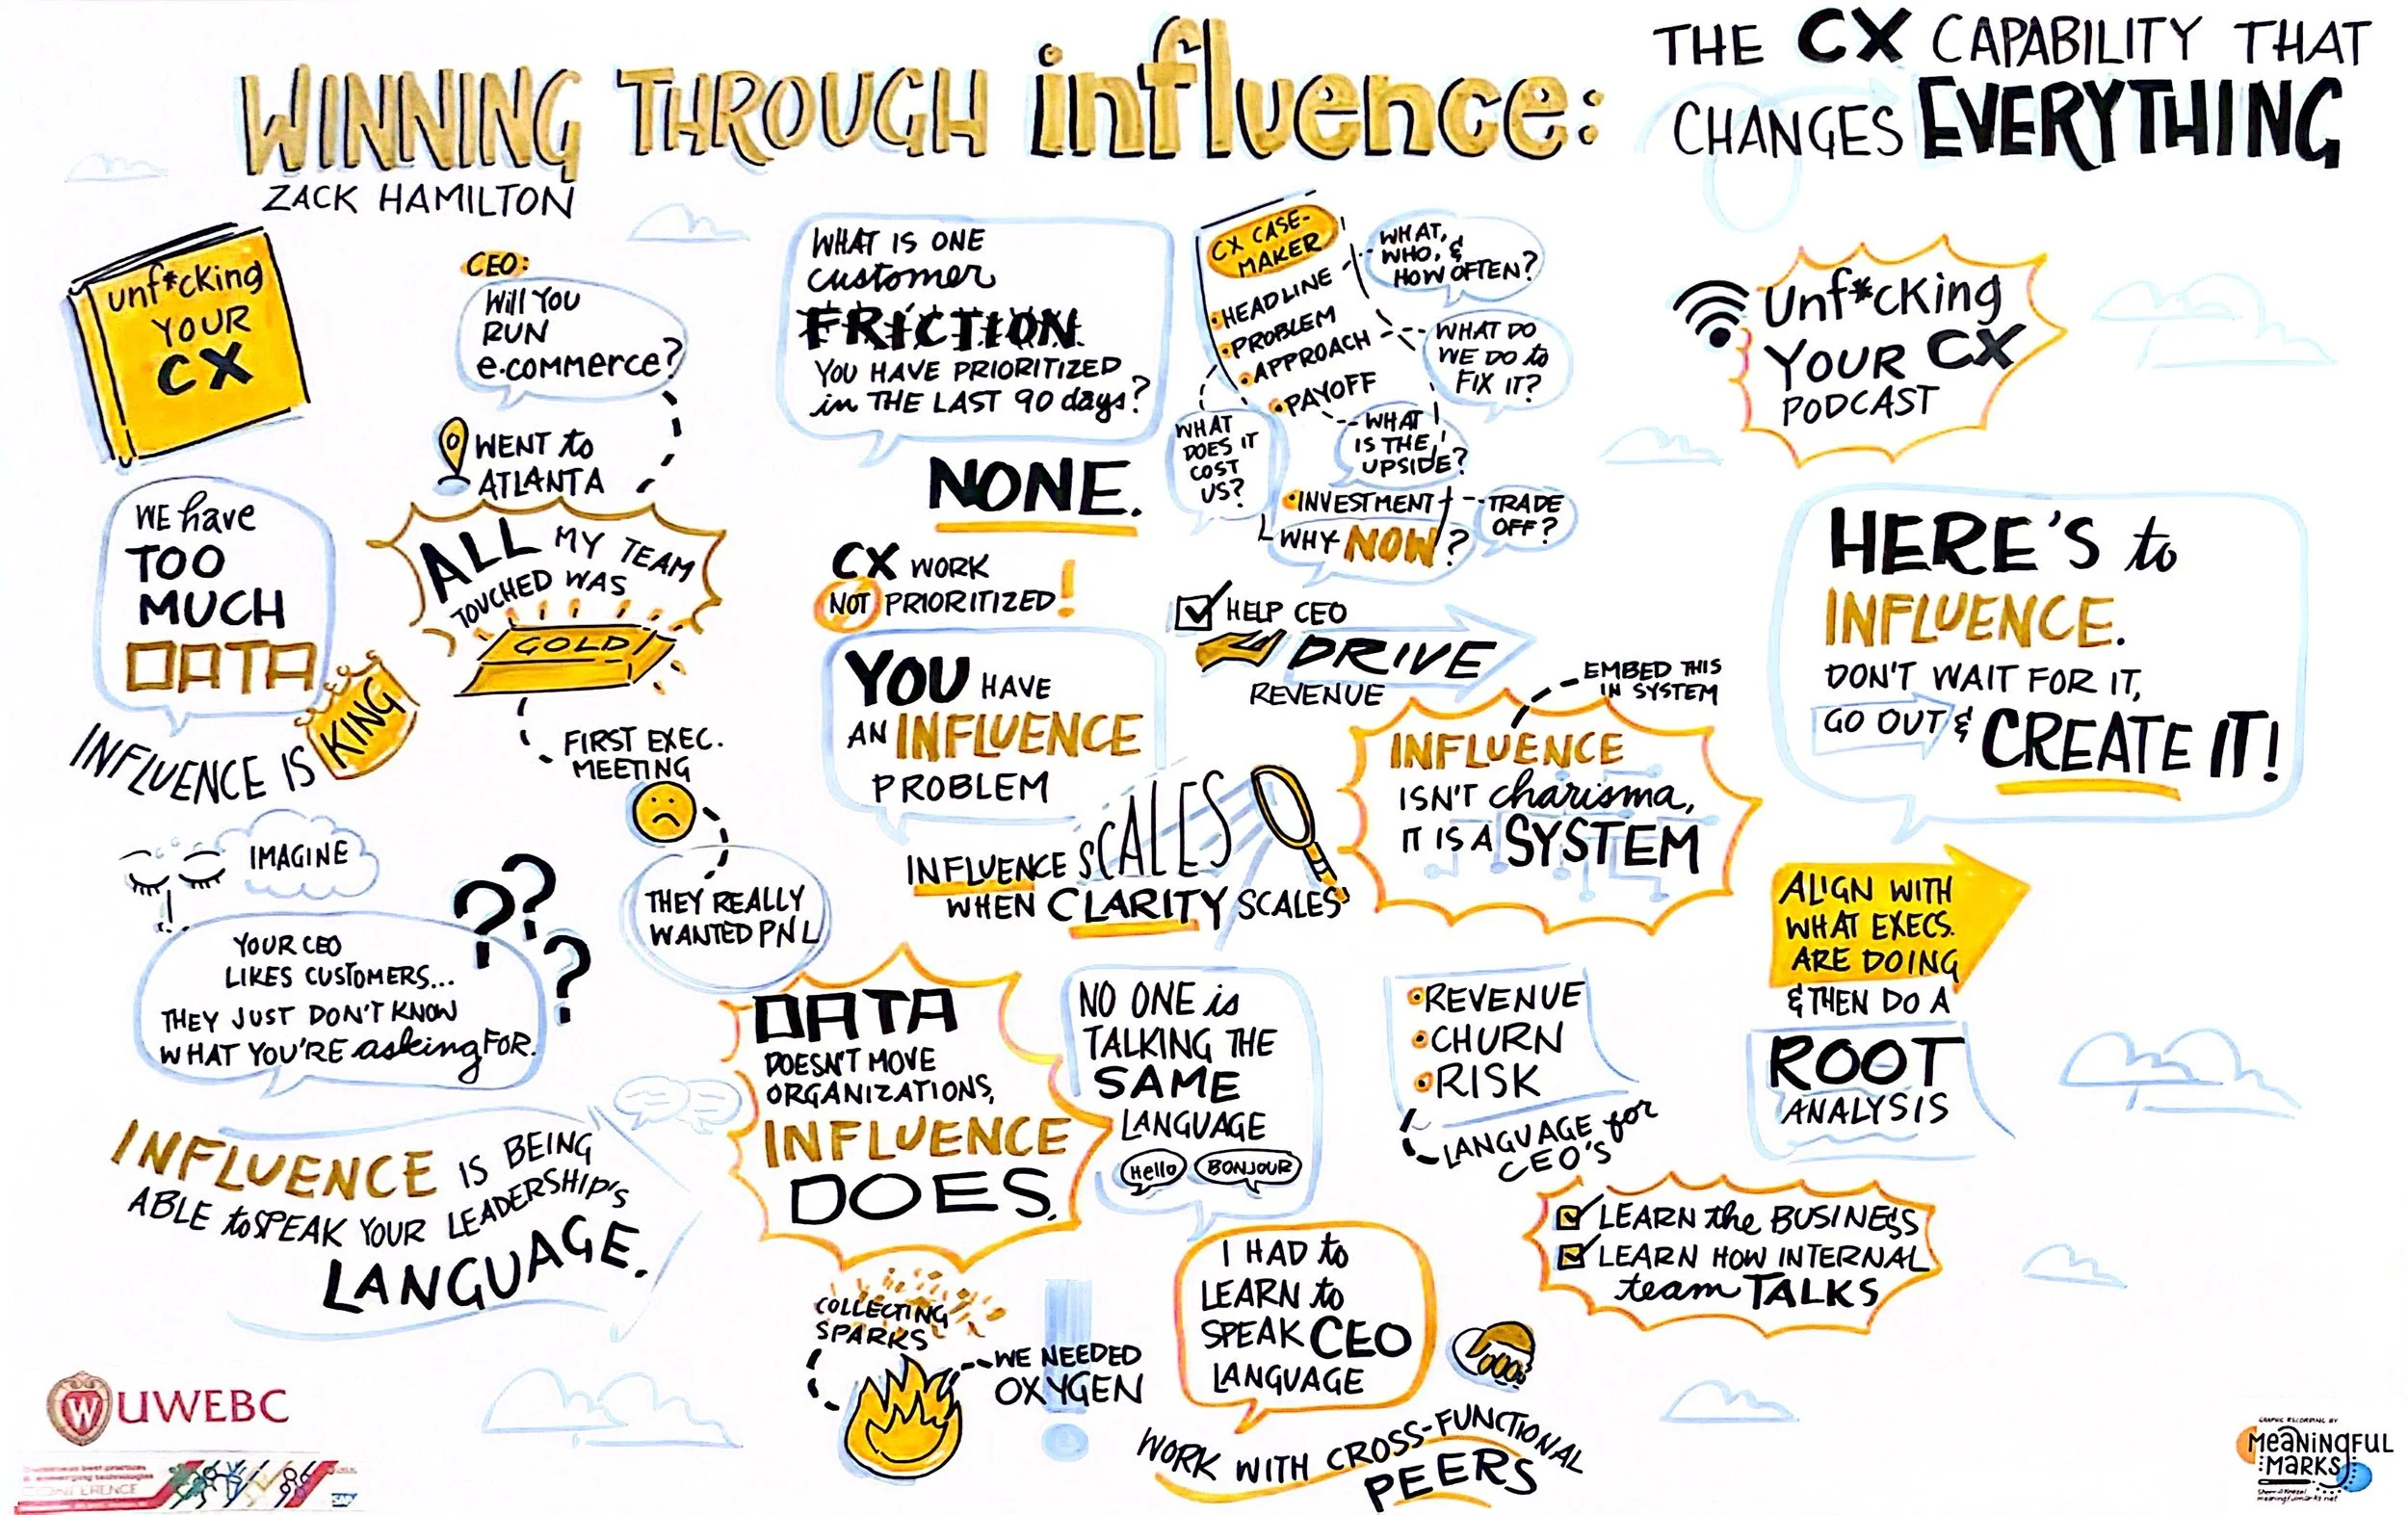 WINNING THROUGH influence:
THE CX CAPABILITY THAT
CHANGES EVERYTHING
ZACK HAMILTON
unf*cking
YOUR
CX
CEO:
Will YOU
RUN
e-commerce?
WENT to
ATLANTA
ALL MY TEAM
TOUCHED WAS
GOLD!
FIRST EXEC.
MEETING
THEY REALLY
WANTED PNL
WE have
TOO
MUCH
DATA
INFLUENCE IS KING
IMAGINE
???
YOUR CEO
LIKES CUSTOMERS...
THEY JUST DON'T KNOW
WHAT YOU'RE asking FOR.
INFLUENCE IS BEING
ABLE to SPEAK YOUR LEADERSHIP'S
LANGUAGE.
WHAT IS ONE
customer
FRICTION
YOU HAVE PRIORITIZED
in THE LAST 90 days?
NONE.
CX WORK
NOT PRIORITIZED!
YOU HAVE
AN INFLUENCE
PROBLEM
INFLUENCE SCALES
WHEN CLARITY SCALES
DATA
DOESN'T MOVE
ORGANIZATIONS,
INFLUENCE
DOES.
COLLECTING
SPARKS
WE NEEDED
OXYGEN
!
CX CASE-
MAKER
•HEADLINE
•PROBLEM
•APPROACH
•PAYOFF
•INVESTMENT
WHAT,
WHO, &
HOW OFTEN?
WHAT DO
WE DO to
FIX IT?
WHAT
DOES IT
COST
US?
WHAT
IS THE
UPSIDE?
TRADE
OFF?
WHY NOW?
HELP CEO
DRIVE
REVENUE
EMBED THIS
IN SYSTEM
INFLUENCE
ISN'T charisma,
IT IS A SYSTEM
NO ONE is
TALKING THE
SAME
LANGUAGE
Hello
BONJOUR
I HAD to
LEARN to
SPEAK CEO
LANGUAGE
WORK WITH CROSS-FUNCTIONAL
PEERS
•REVENUE
•CHURN
•RISK
LANGUAGE for
CEO'S
Unf*cking
YOUR CX
PODCAST
HERE'S to
INFLUENCE.
DON'T WAIT FOR IT,
GO OUT &
CREATE IT!
ALIGN WITH
WHAT EXECS.
ARE DOING
& THEN DO A
ROOT
ANALYSIS
LEARN the BUSINESS
LEARN HOW INTERNAL
team TALKS
W UWEBC
CONFERENCE
SAP
GRAPHIC RECORDING BY
MEANINGFUL
MARKS
meaningfulmarks.net